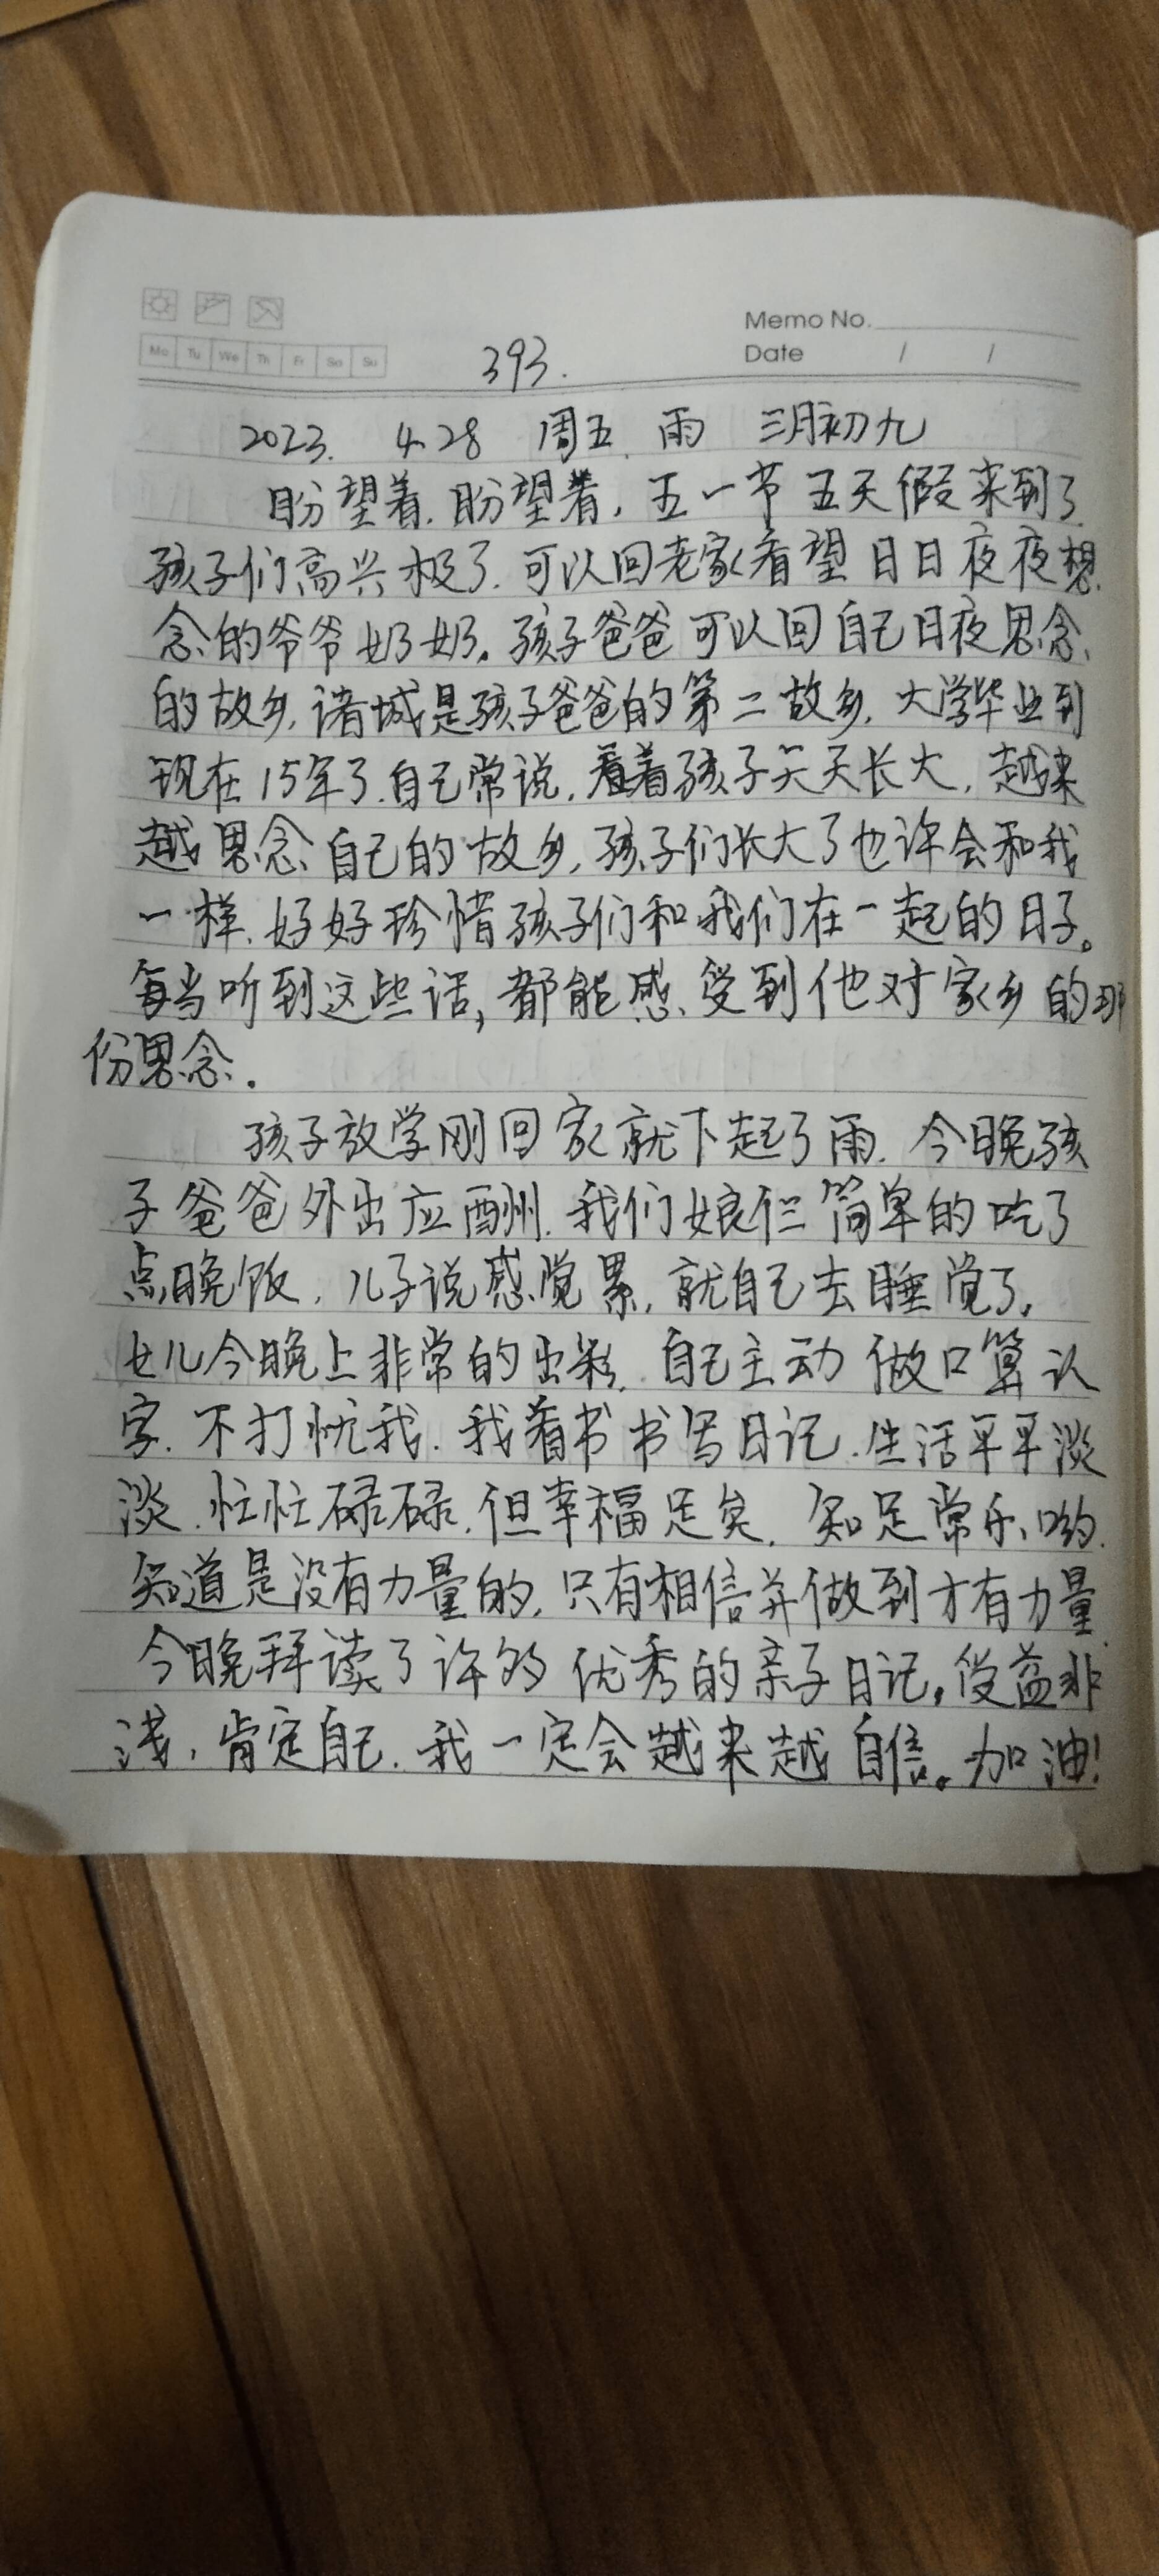 Memo No.
Mo Tu We Th Fr Sa Su
Date / /
393.
2023. 4.28 周五. 雨 三月初九
盼望着.盼望着,五一节五天假来到了.
孩子们高兴极了.可以回老家看望日日夜夜想
念的爷爷奶奶。孩子爸爸可以回自己日夜思念
的故乡.诸城是孩子爸爸的第二故乡.大学毕业到
现在15年了.自己常说,看着孩子天天长大,越来
越思念自己的故乡,孩子们长大了也许会和我
一样.好好珍惜孩子们和我们在一起的日子。
每当听到这些话,都能感受到他对家乡的那
份思念.
孩子放学刚回家就下起了雨.今晚孩
子爸爸外出应酬.我们娘仨简单的吃了
点晚饭,儿子说感觉累,就自己去睡觉了.
女儿今晚上非常的出彩.自己主动做口算认
字.不打忧我.我看书书写日记.生活平平淡
淡.忙忙碌碌.但幸福足矣.知足常乐哟.
知道是没有力量的,只有相信并做到才有力量.
今晚拜读了许多优秀的亲子日记。受益非
浅,肯定自己.我一定会越来越自信。加油!